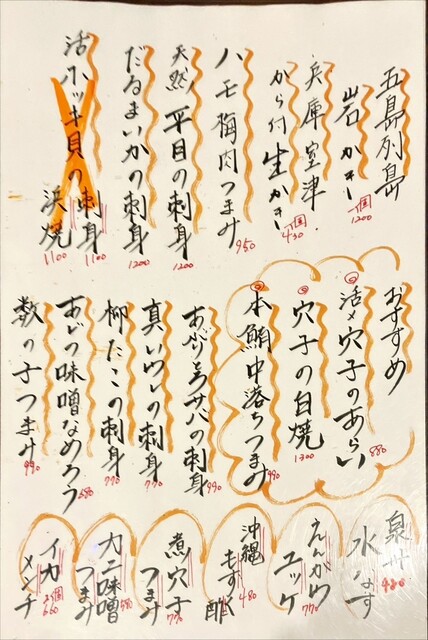 五島列島
岩かき
一個
1200
兵庫室津
から付生かき
一個
430
ハモ梅肉つまみ
950
天然平目の刺身
1200
だるまいかの刺身
1200
活ホッキ貝の刺身
1100
浜焼
1100
おすすめ
活〆穴子のあらい
880
穴子の白焼
1300
本鮪中落ちつまみ
990
あぶりとろサバの刺身
890
真いわしの刺身
770
柳たこの刺身
770
あじの味噌なめろう
880
数の子つまみ
990
泉州
水なす
480
えんがわ
ユッケ
770
沖縄
もずく酢
480
煮穴子
つまみ
770
カニ味噌
つまみ
580
イカ
メンチ
2個
660